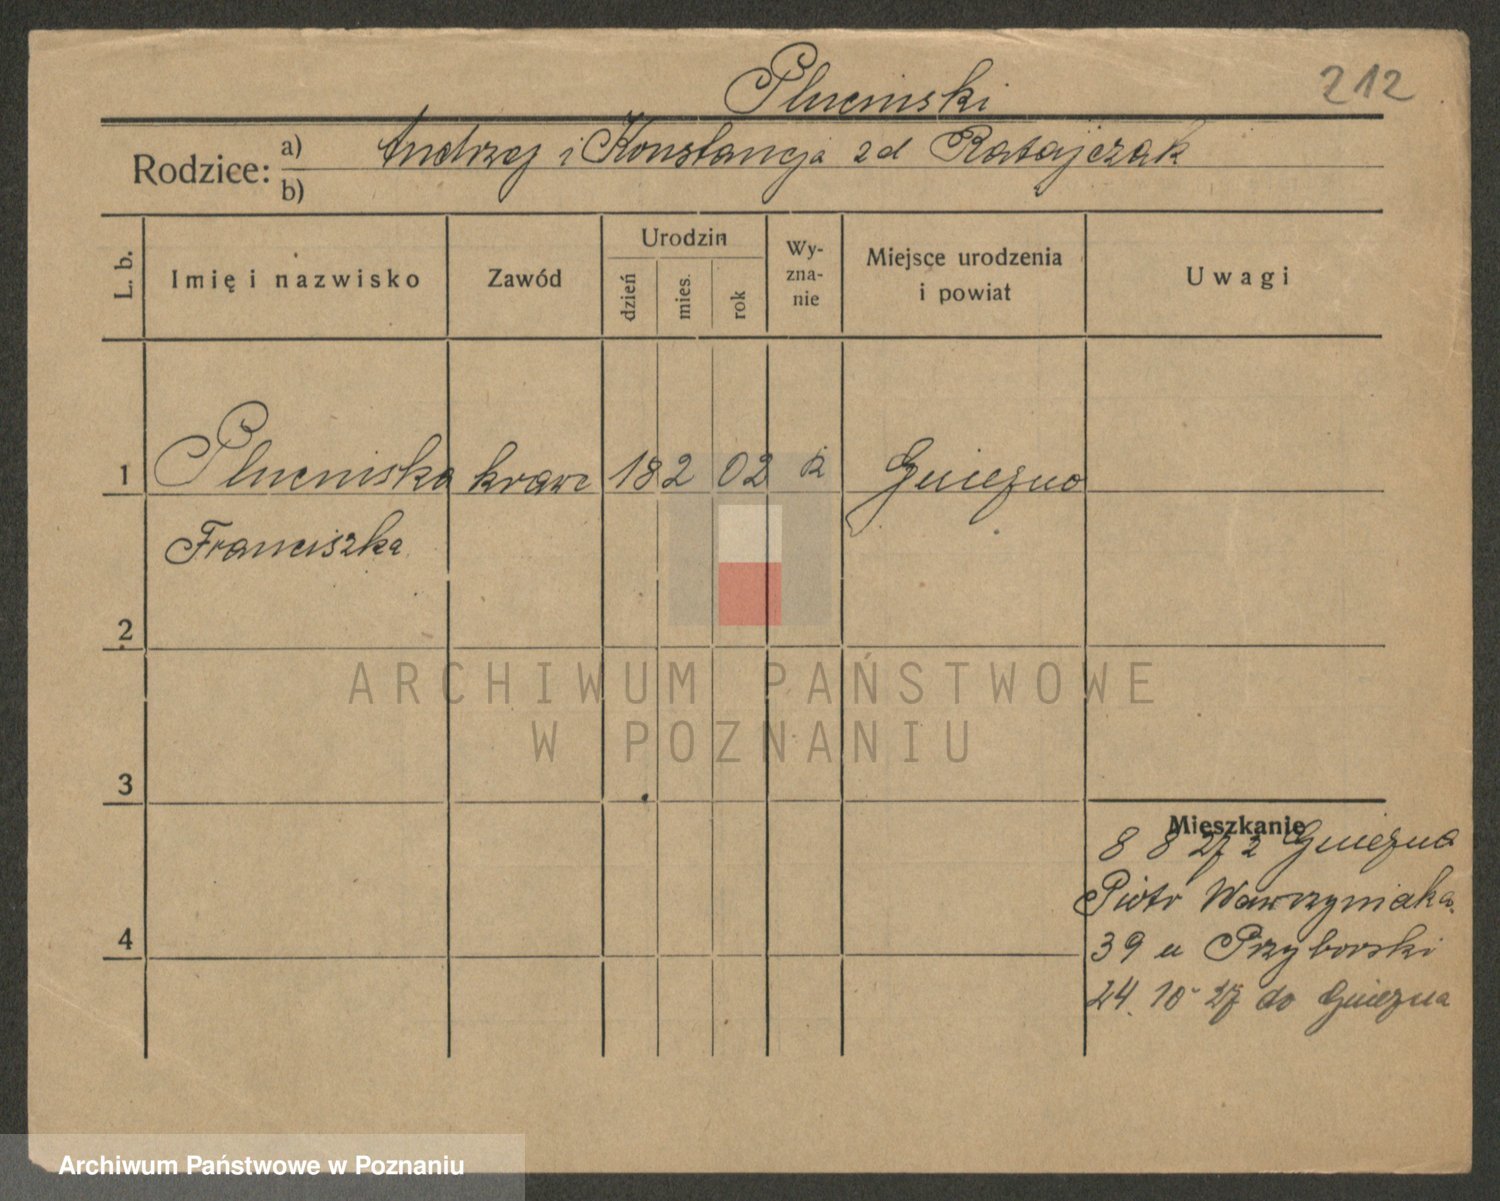 Plucinski
212
Rodzice: a) Andrzej i Konstancja zd Ratajczak
b)
L. b.
Imię i nazwisko
Zawód
Urodzin
dzień
mies.
rok
Wy-
zna-
nie
Miejsce urodzenia
i powiat
Uwagi
1 Plucinska krawc 18 2 02 k Gniezno
Franciszka
2
3
4
Mieszkanie
8 8 27 z Gniezna
Piotr Wawrzyniaka
39 u Przyborski
24. 10 27 do Gniezna
ARCHIWUM PAŃSTWOWE
W POZNANIU
Archiwum Państwowe w Poznaniu